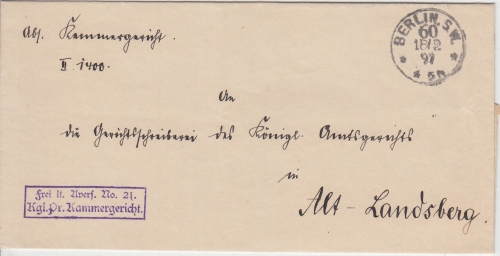 Abs. Kammergericht.
II 1400.
BERLIN, S.W.
60
18/2
97
* * 5N *
An
die Gerichtsschreiberei des Königl. Amtsgerichts
in
Alt-Landsberg.
Frei lt. Avers. No. 21.
Kgl. Pr. Kammergericht.